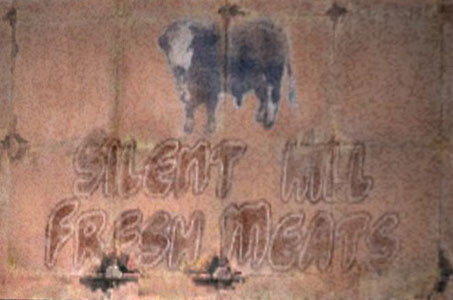 SILENT HILL
FRESH MEATS